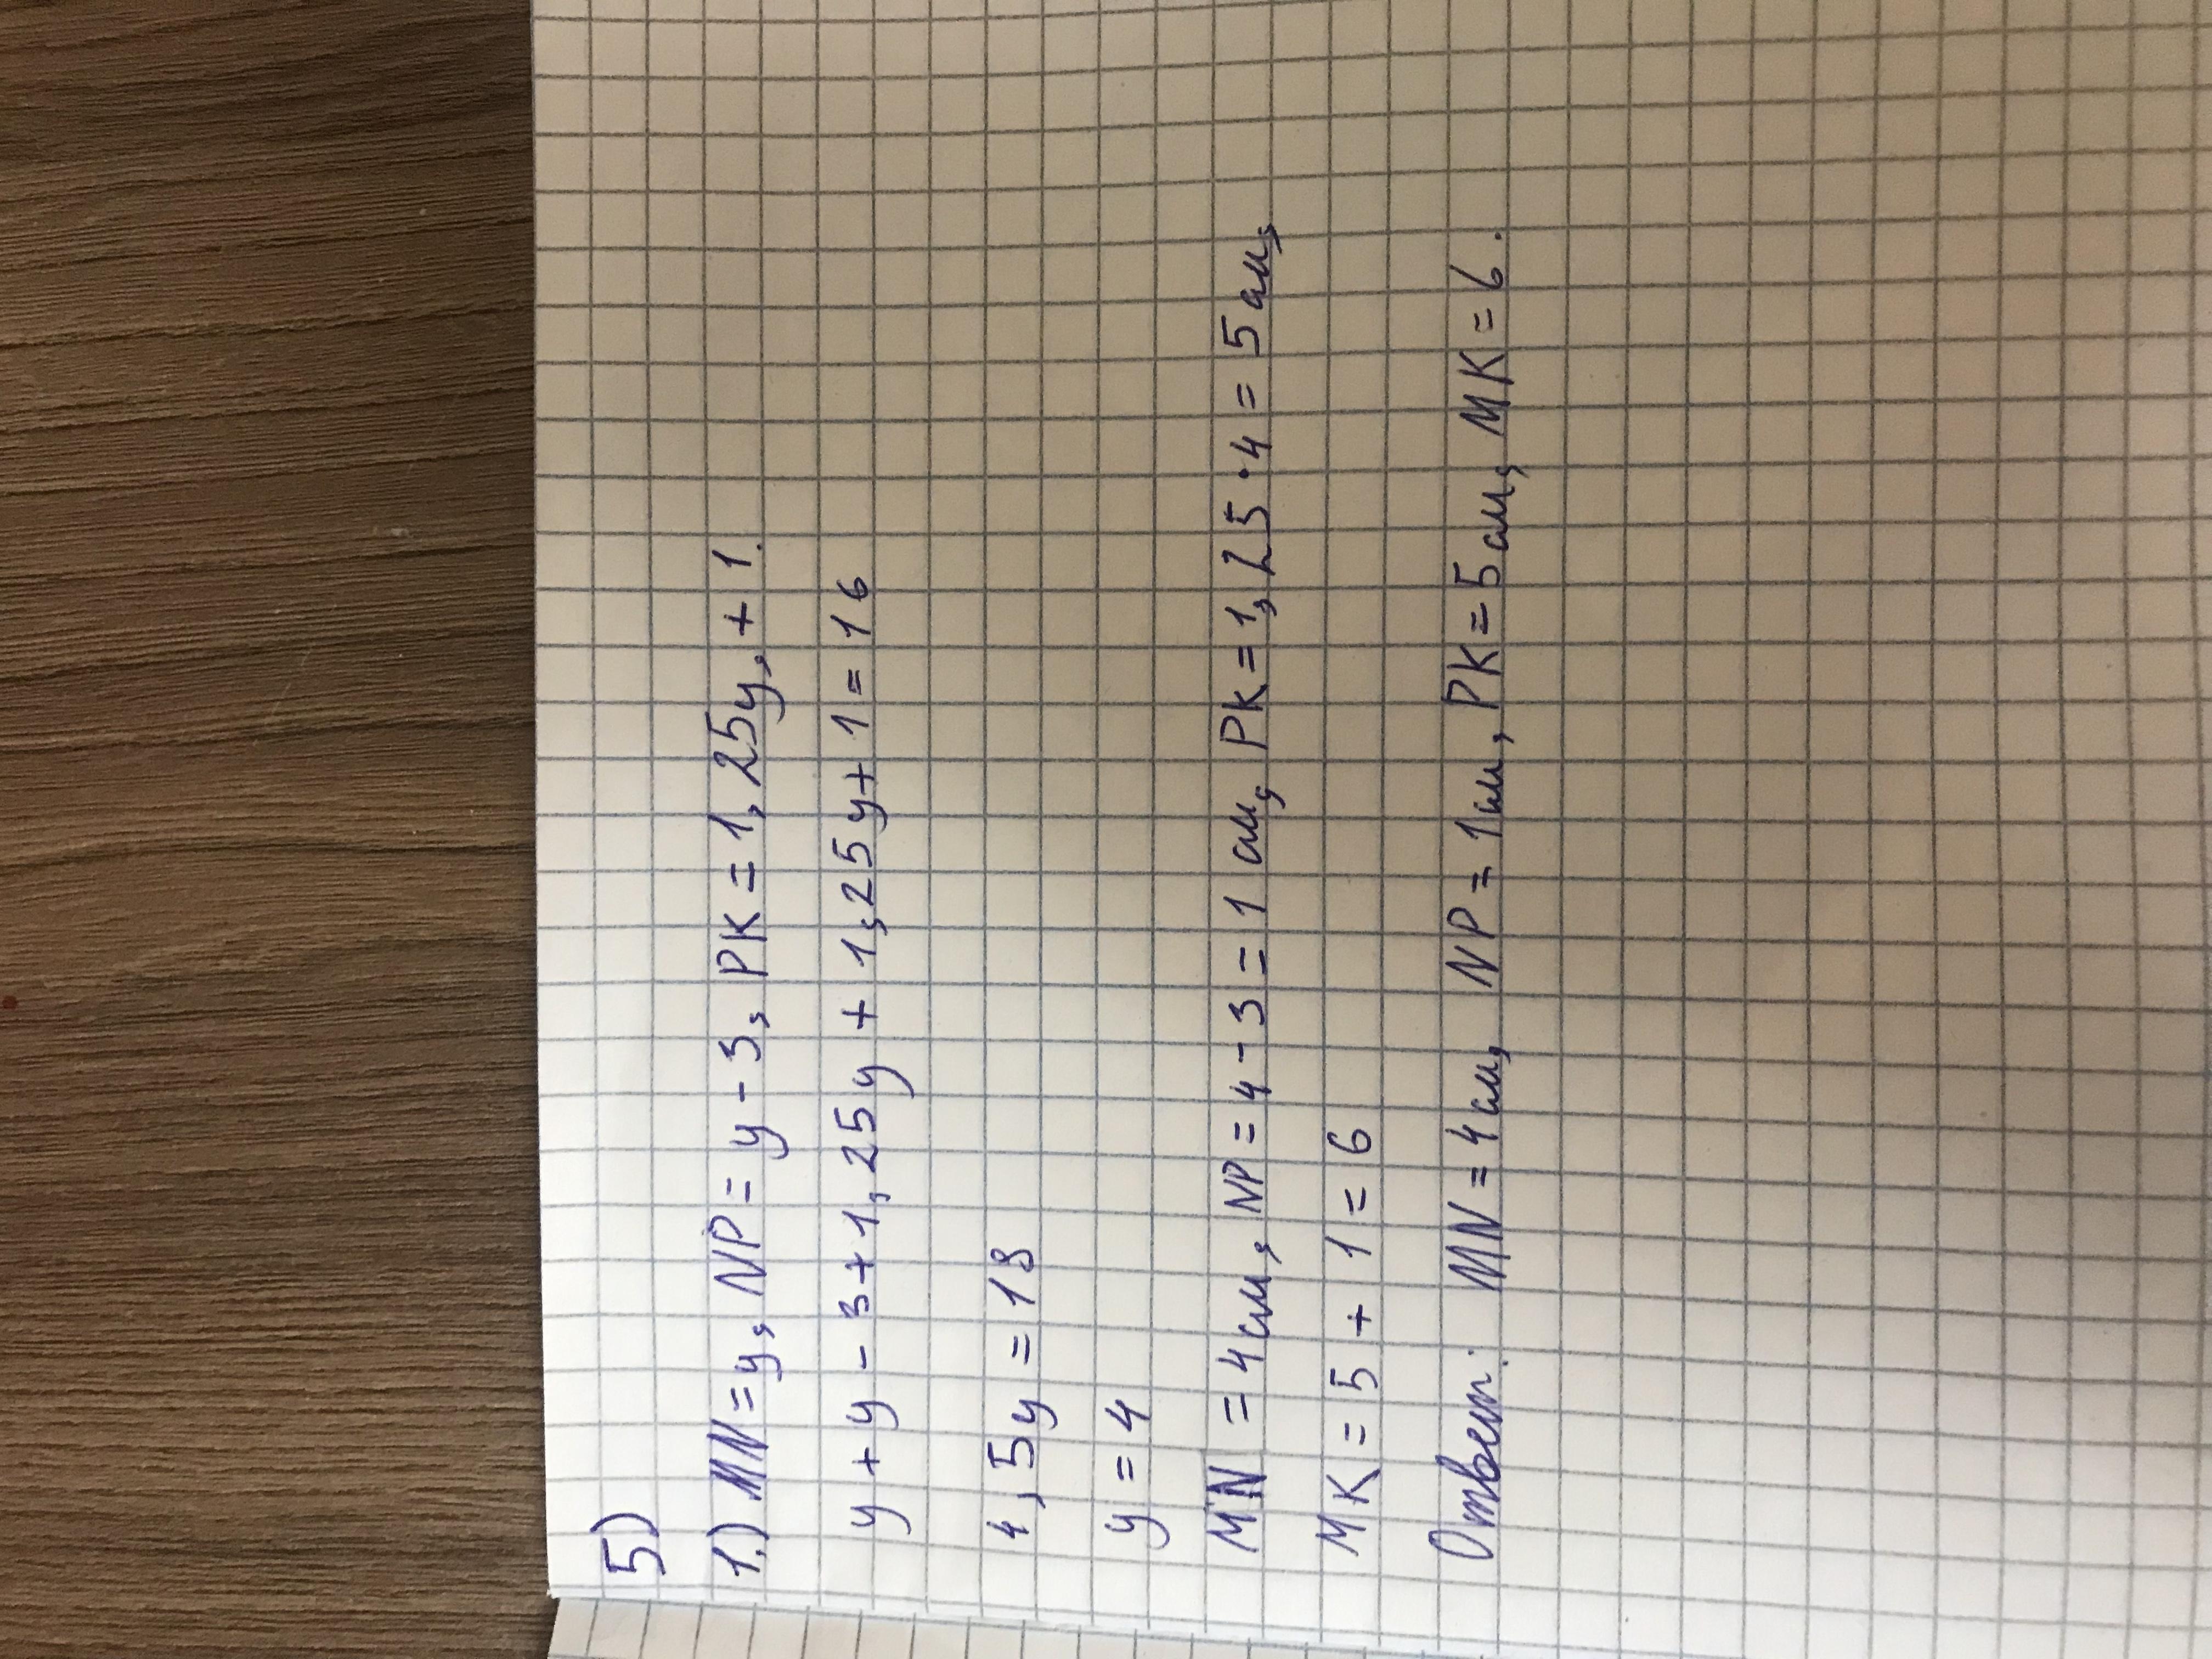 5)
1.) MN = y, NP = y - 3, PK = 1,25y, + 1.
y + y - 3 + 1,25y + 1,25y + 1 = 16
4,5y = 18
y = 4
MN = 4 см, NP = 4 - 3 = 1 см, PK = 1,25 · 4 = 5 см,
MK = 5 + 1 = 6
Ответ: MN = 4 см, NP = 1 см, PK = 5 см, MK = 6.